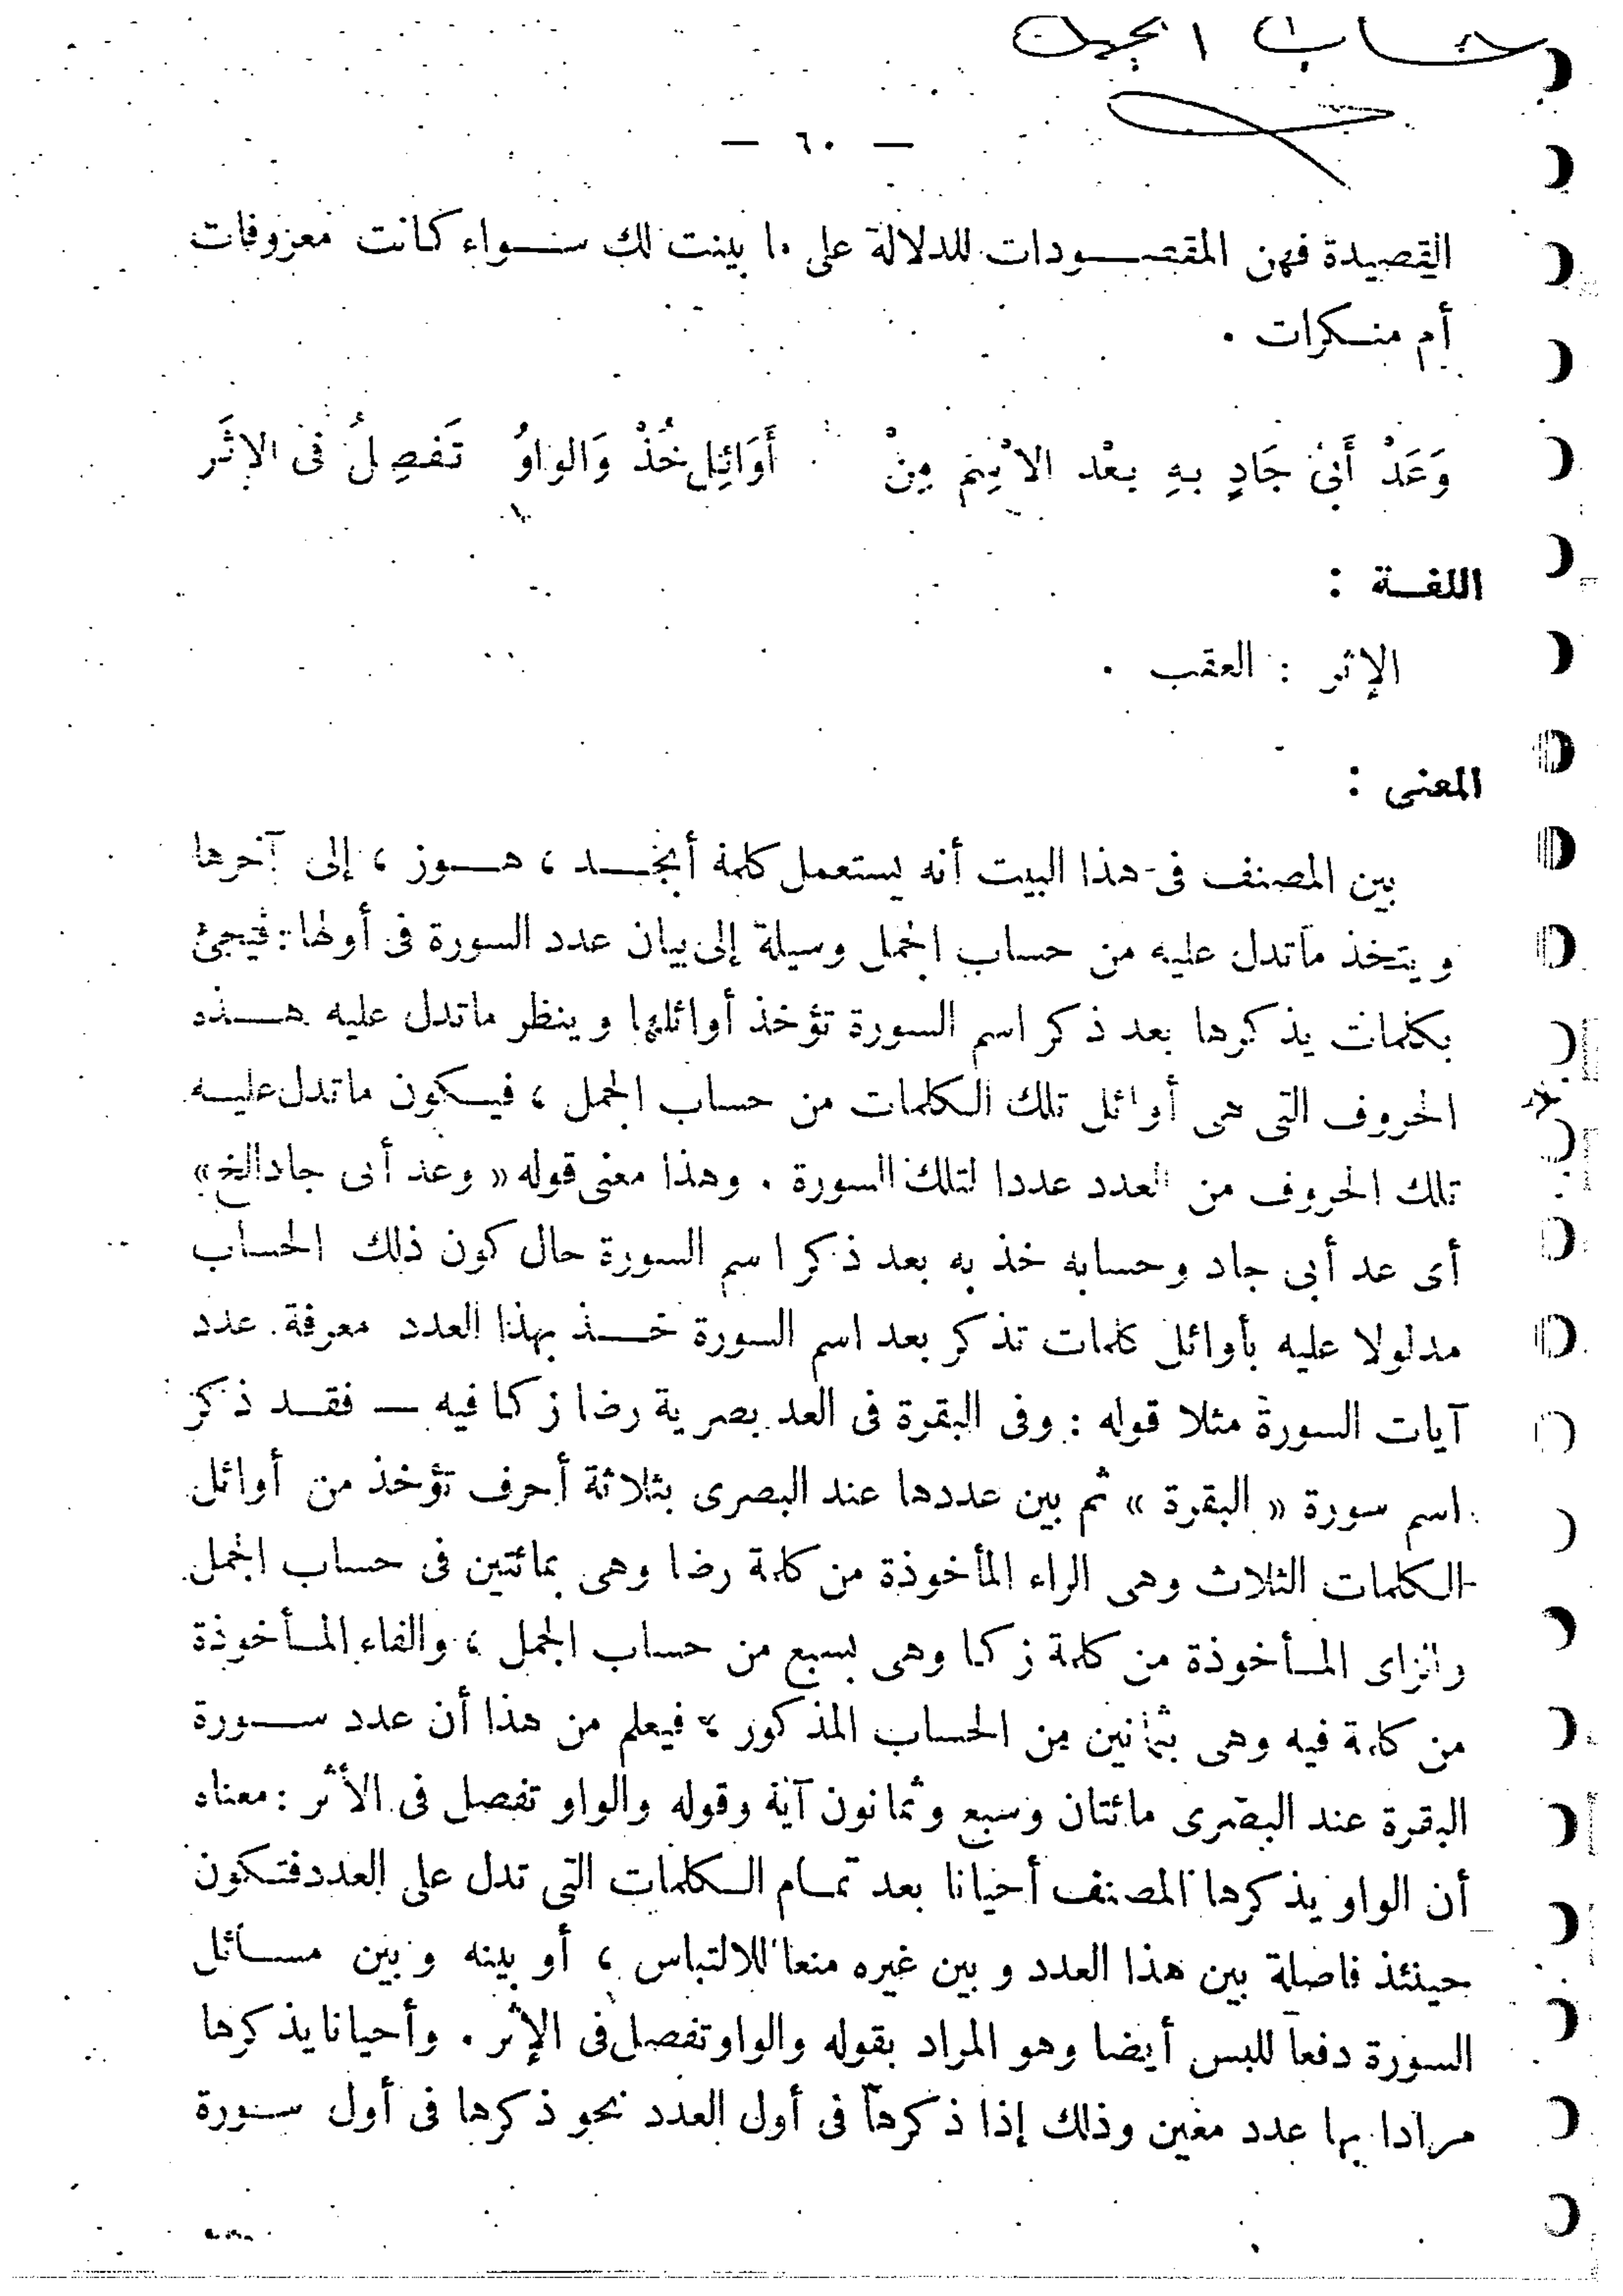 حساب الجمل
— ٦٠ —
القصيدة فهن المقصودات للدلالة على ما بينت لك سواء كانت معروفات
أم منكرات .
وَعَدْ أَبِى جَادٍ بهِ بعْد الاسْمِ مِنْ أَوَائِلِ خُذْ وَالواوُ تَفصِلُ فى الإثَر
اللغة :
الإثر : العقب .
المعنى :
بين المصنف فى هذا البيت أنه يستعمل كلمة أبجد ، هوز ، إلى آخرها
ويتخذ ماتدل عليه من حساب الجمل وسيلة إلى بيان عدد السورة فى أولها : فيجئ
بكلمات يذكرها بعد ذكر اسم السورة تؤخذ أوائلها وينظر ماتدل عليه هذه
الحروف التى هى أوائل تلك الكلمات من حساب الجمل ، فيكون ماتدل عليه
تلك الحروف من العدد عددا لتلك السورة . وهذا معنى قوله « وعد أبى جاد الخ »
أى عد أبى جاد وحسابه خذ به بعد ذكر اسم السورة حال كون ذلك الحساب
مدلولا عليه بأوائل كلمات تذكر بعد اسم السورة خذ بهذا العدد معرفة عدد
آيات السورة مثلا قوله : وفى البقرة فى العد بصرية رضا زكا فيه — فقد ذكر
اسم سورة « البقرة » ثم بين عددها عند البصرى بثلاثة أحرف تؤخذ من أوائل
الكلمات الثلاث وهى الراء المأخوذة من كلمة رضا وهى بمائتين فى حساب الجمل
والزاى المأخوذة من كلمة زكا وهى بسبع من حساب الجمل ، والفاء المأخوذة
من كلمة فيه وهى بثمانين من الحساب المذكور ، فيعلم من هذا أن عدد سورة
البقرة عند البصرى مائتان وسبع وثمانون آية وقوله والواو تفصل فى الأثر : معناه
أن الواو يذكرها المصنف أحيانا بعد تمام الكلمات التى تدل على العدد فتكون
حينئذ فاصلة بين هذا العدد وبين غيره منعا للالتباس ، أو بينه وبين مسائل
السورة دفعا للبس أيضا وهو المراد بقوله والواو تفصل فى الإثر . وأحيانا يذكرها
مرادا بها عدد معين وذلك إذا ذكرها فى أول العدد نحو ذكرها فى أول سورة